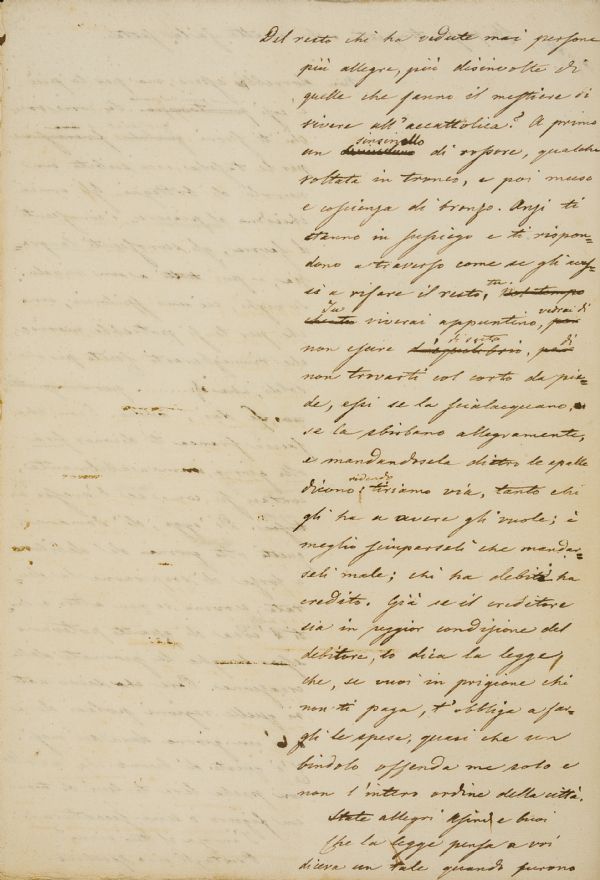 Del resto chi ha vedute mai persone
più allegre, più disinvolte di
quelle che fanno il mestiere di
vivere all'accattolica? A primo
un sinsinello di rossore, qualche
voltata in tronco, e poi muso
e coscienza di bronzo. Anzi ti
stanno in sussiego e ti rispon=
dono a traverso come se gli aves=
si a rifare il resto, tu, nel tempo
che tu Tu viverai appuntino, per vedrai di
non essere d'equilibrio, per di
non trovarti col corto da pie=
de, essi se la scialacquano,
se la sbirbano allegramente,
e mandandosela dietro le spalle
dicono ridendo; tiriamo via, tanto chi
gli ha a avere gli vuole; è
meglio sciuparseli che mandar=
seli male; chi ha debiti ha
credito. Già se il creditore
sia in peggior condizione del
debitore, lo dica la legge,
che, se vuoi in prigione chi
non ti paga, t'obbliga a far=
gli le spese, quasi che un
bindolo offenda me solo e
non l'intero ordine della città.
State allegri Asini e buoi
Che la legge pensa a voi
diceva un tale quando furono